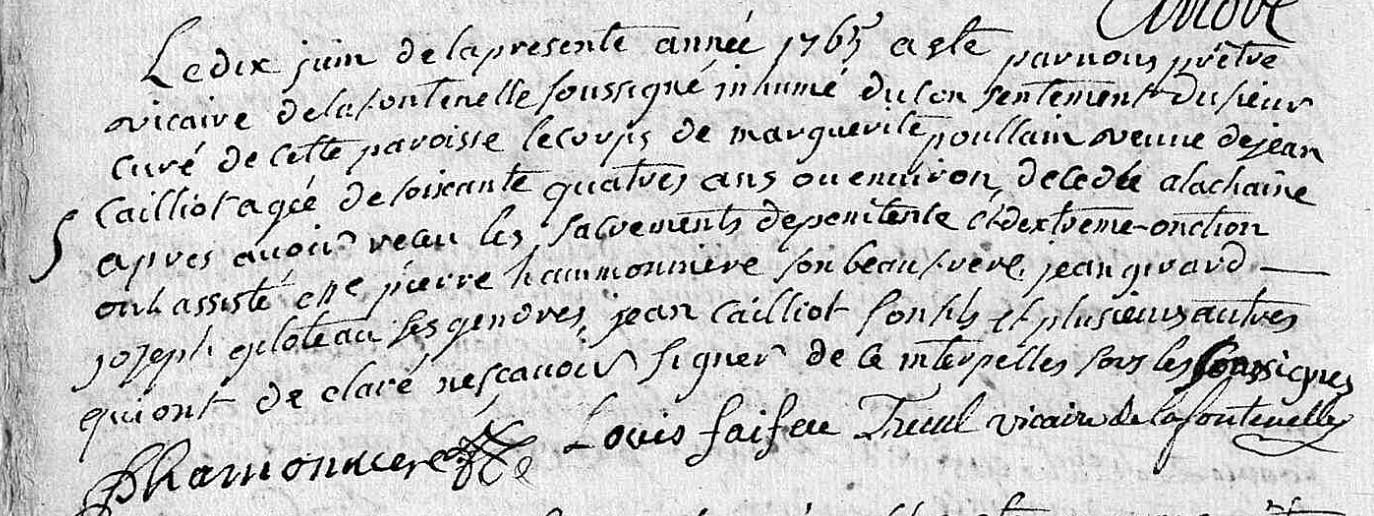 Le dix juin de la presente année 1765 a este par nous prêtre
vicaire de la fontenelle soussigné inhumé du consentement du sieur
curé de cette paroisse le corps de marguerite poullain veuve de jean
Cailliot agée de soixante quatres ans ou environ, decedée a la chaine
apres avoir recu les sacrements de penitence et dextreme-onction
ont assisté pierre hammonniere son beaufrere, jean girard
joseph ses gendres, jean Cailliot son fils et plusieurs autres
qui ont declaré ne sçavoir signer de ce interpelles fors les soussignes
phamonniere Louis faifeu Treul vicaire de la fontenelle